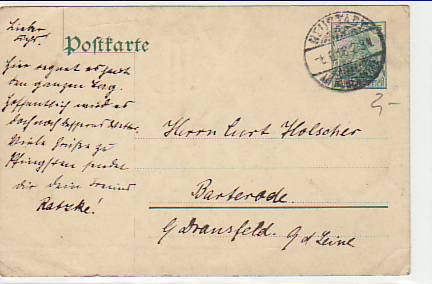 Lieber
Curt.
Postkarte
Hier regnet es fast
den ganzen Tag.
Hoffentlich wird es
doch noch besseres Wetter.
Viele Grüße zu
Pfingsten sendet
dir dein Freund
Ratzke!
NEUSTADT
Herrn Curt Holscher
Barterode
b/ Dransfeld. a/d Leine
2,-